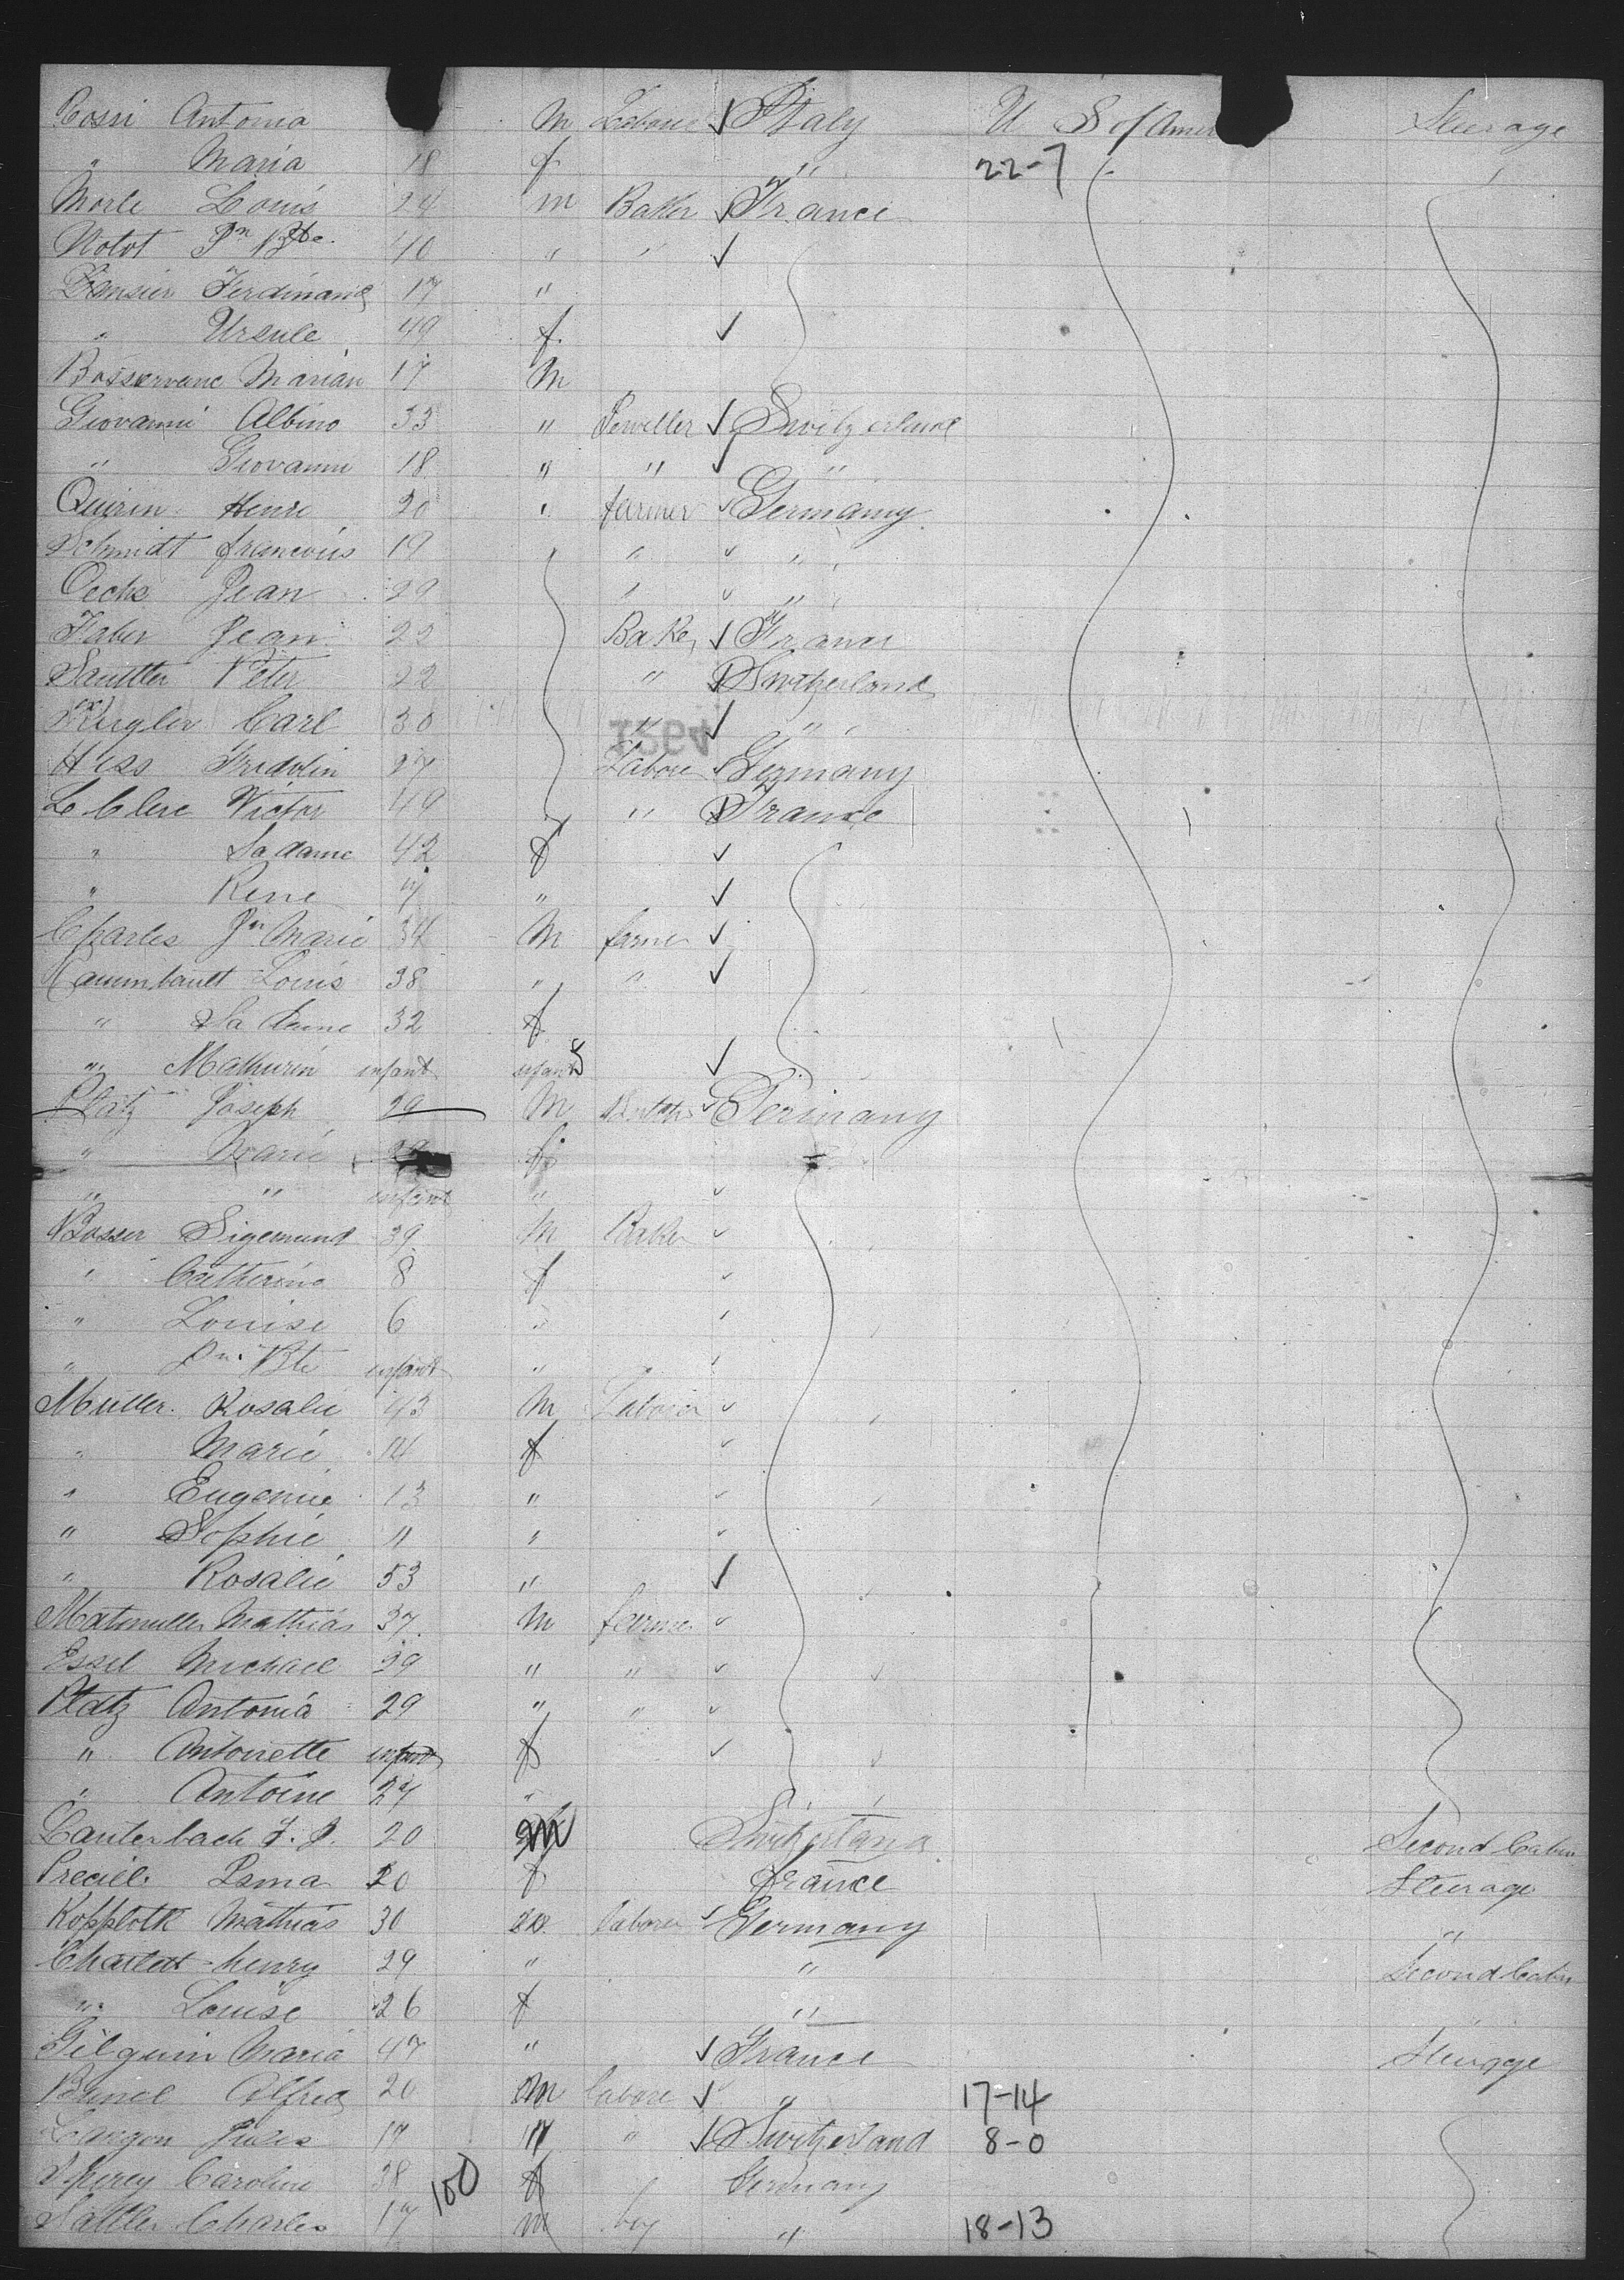 Rossi Antonia M Labourer Italy U S of Amer Steerage
" Maria 18 f " 22-7 "
Morle Louis 24 m Baker France
Notot Jn Bte 40 " "
Ferdinand 17 "
" Ursule 49 f.
Marian 17 M
Giovanni Albino 33 " Jeweller Switzerland
" Giovanni 18 " " "
Quirin Henri 20 " farmer Germany
Schmidt francois 19 " "
Oechs Jean 29 " "
Faber Jean 22 Baker France
Sauttter Peter 22 " Switzerland
Kugler Carl 30 " "
1264
Hess Fridolin 27 Labore Germany
Le Clerc Victor 49 " France
" Sa dame 42 f
" Rene 4 "
Charles Jn Marie 34 M farmer
Louis 38 " "
" Sa dame 32 f
" Mathurin infant infant
Platz Joseph 29 M Germany
" Marie 29 f
" " infant "
Bosser Sigesmund 39 M Baker
" Catherine 8 f
" Louise 6 "
" Jn. Bte infant "
Muller. Rosalie 43 M Laborer
" Marie 14 f
" Eugenie 13 "
" Sophie 11 "
" Rosalie 53 "
Matmuller Mathias 37 M farmer
Essel Michael 29 " "
Platz Antonia 29 " "
" Antoinette infant f
" Antoine 27 "
Lauterbach F. J. 20 M Switzerland Second Cabin
20 f france Steerage
Kopplotk Mathias 30 m laborer Germany "
henry 29 " " Second Cabin
" Louise 26 f "
Gilquin Maria 47 " France Steerage
Alfred 20 M labore " 17-14
Jules 17 " " Switzerland 8-0
Caroline 28 100 f " Germany
Sattler Charles 17 m boy " 18-13